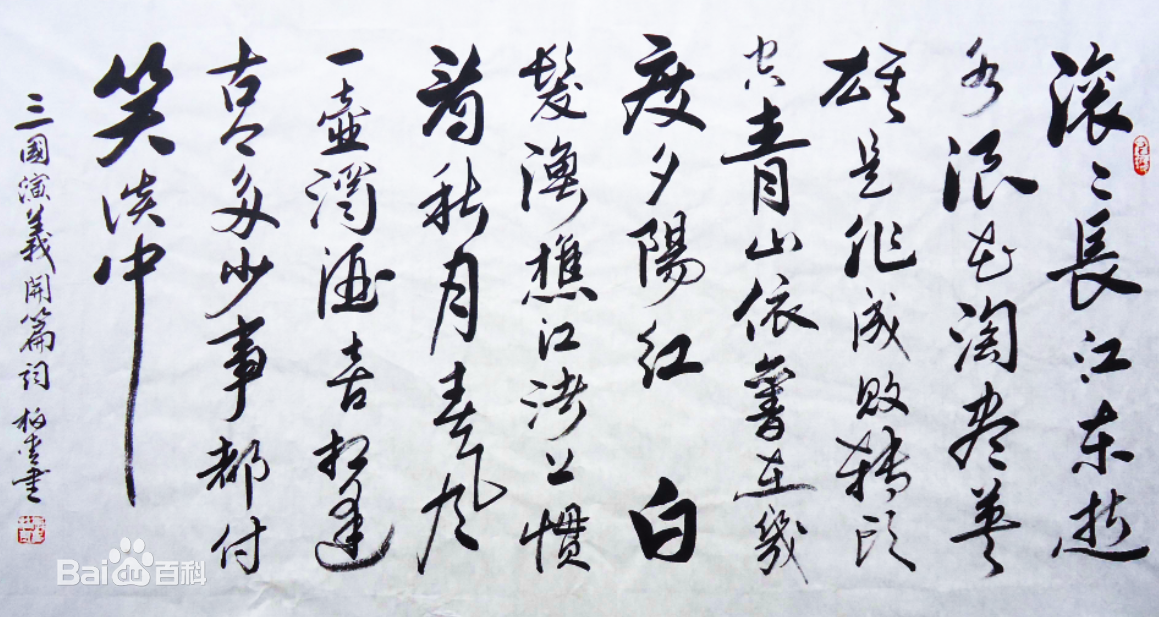 滚〻長江东逝
水浪花淘尽英
雄是非成败轉頭
空青山依舊在幾
度夕陽红 白
髮漁樵江渚上慣
看秋月春风
一壺濁酒喜相逢
古今多少事都付
笑谈中
三國演義開篇词 柏書
Baidu百科